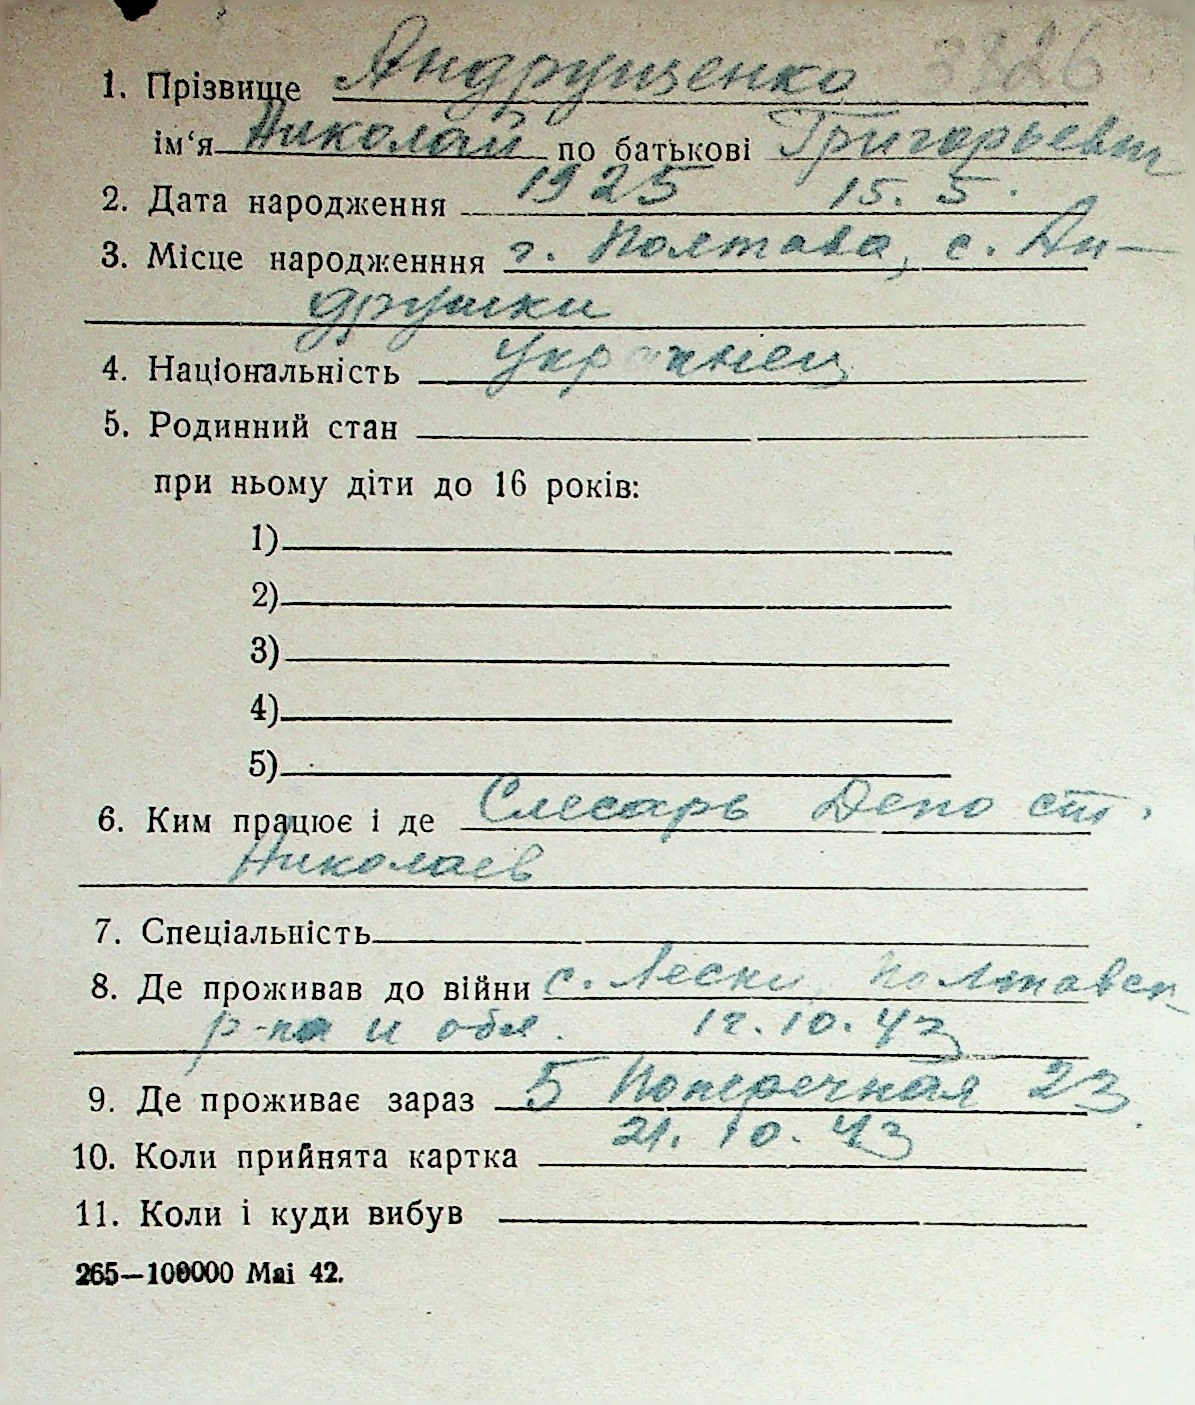 3826
1. Прізвище Андрущенко
ім‘я Николай по батькові Григорьевич
2. Дата народження 1925 15. 5.
3. Місце народженння г. Полтава, с. Ан-
друшки
4. Національність Украинец
5. Родинний стан
при ньому діти до 16 років:
1)
2)
3)
4)
5)
6. Ким працює і де Слесарь Депо ст.
Николаев
7. Спеціальність
8. Де проживав до війни с. Лески Полтавск
р-на и обл. 12.10.43
9. Де проживає зараз 5 Поперечная 23.
10. Коли прийнята картка 21. 10. 43
11. Коли і куди вибув
265—100000 Маі 42.